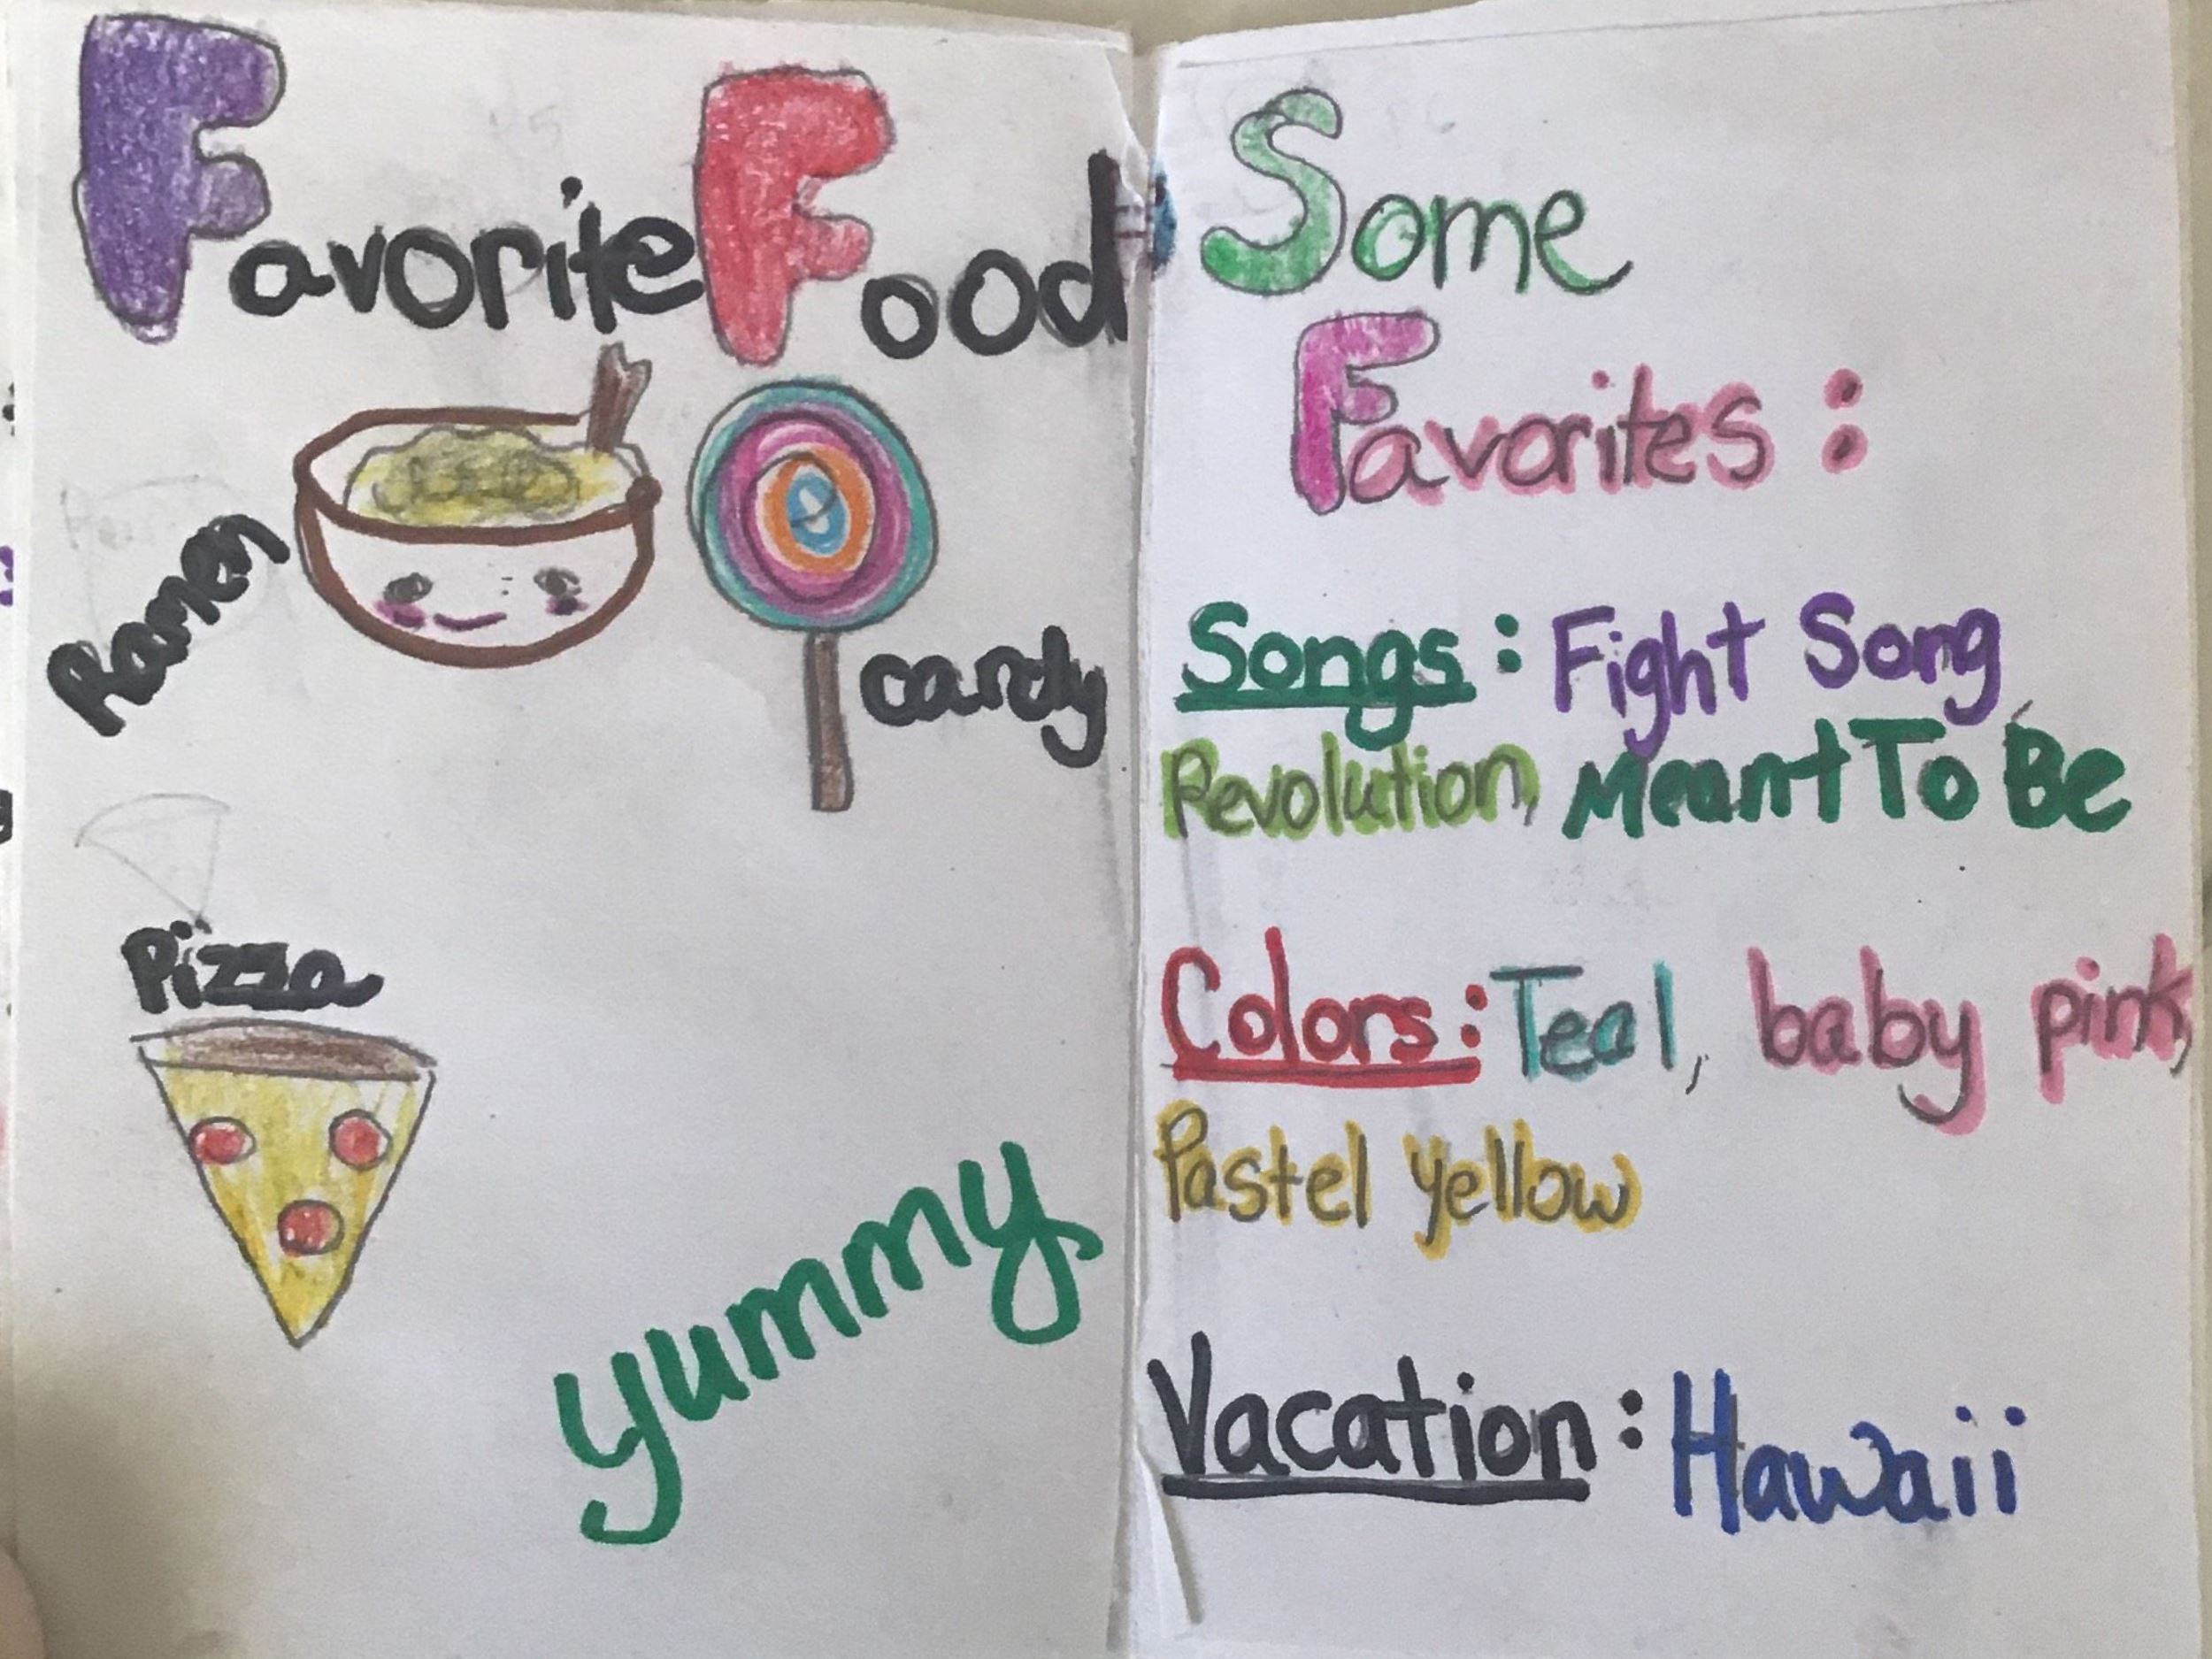 Favorite Food
Ramen
candy
Pizza
yummy
Some
Favorites:
Songs: Fight Song
Revolution, Meant To Be
Colors: Teal, baby pink,
Pastel yellow
Vacation: Hawaii